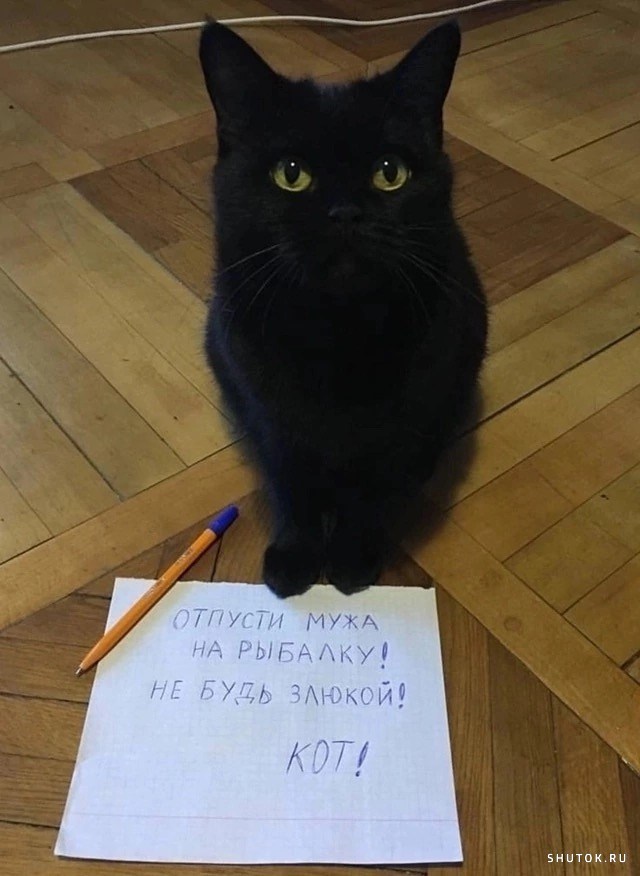 ОТПУСТИ МУЖА
НА РЫБАЛКУ!
НЕ БУДЬ ЗЛЮКОЙ!
КОТ!
SHUTOK.RU